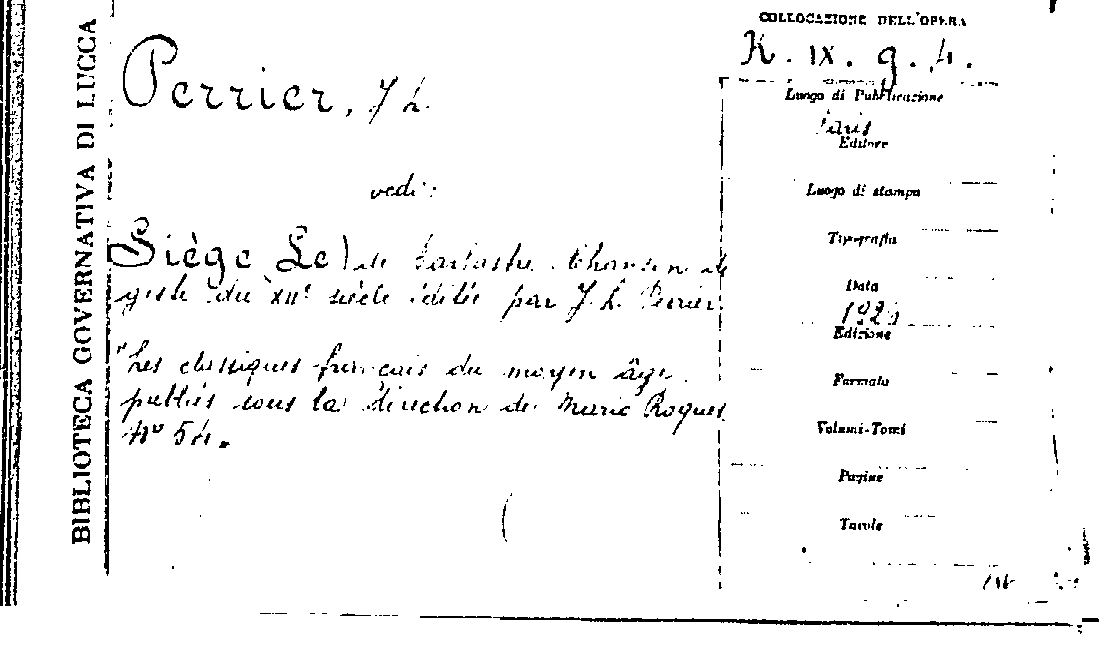 BIBLIOTECA GOVERNATIVA DI LUCCA
COLLOCAZIONE DELL'OPERA
K. IX. g. 4.
Perrier, J L.
vedi:
Siège Le) de Barbastre. Chanson de
geste du XIIe siècle éditée par J. L. Perrier.
"Les classiques français du moyen âge.
publiés sous la direction de Mario Roques
No 54.
Luogo di Pubblicazione
Paris
Editore
Luogo di stampa
Tipografia
Data
1926
Edizione
Formato
Volumi-Tomi
Pagine
Tavole